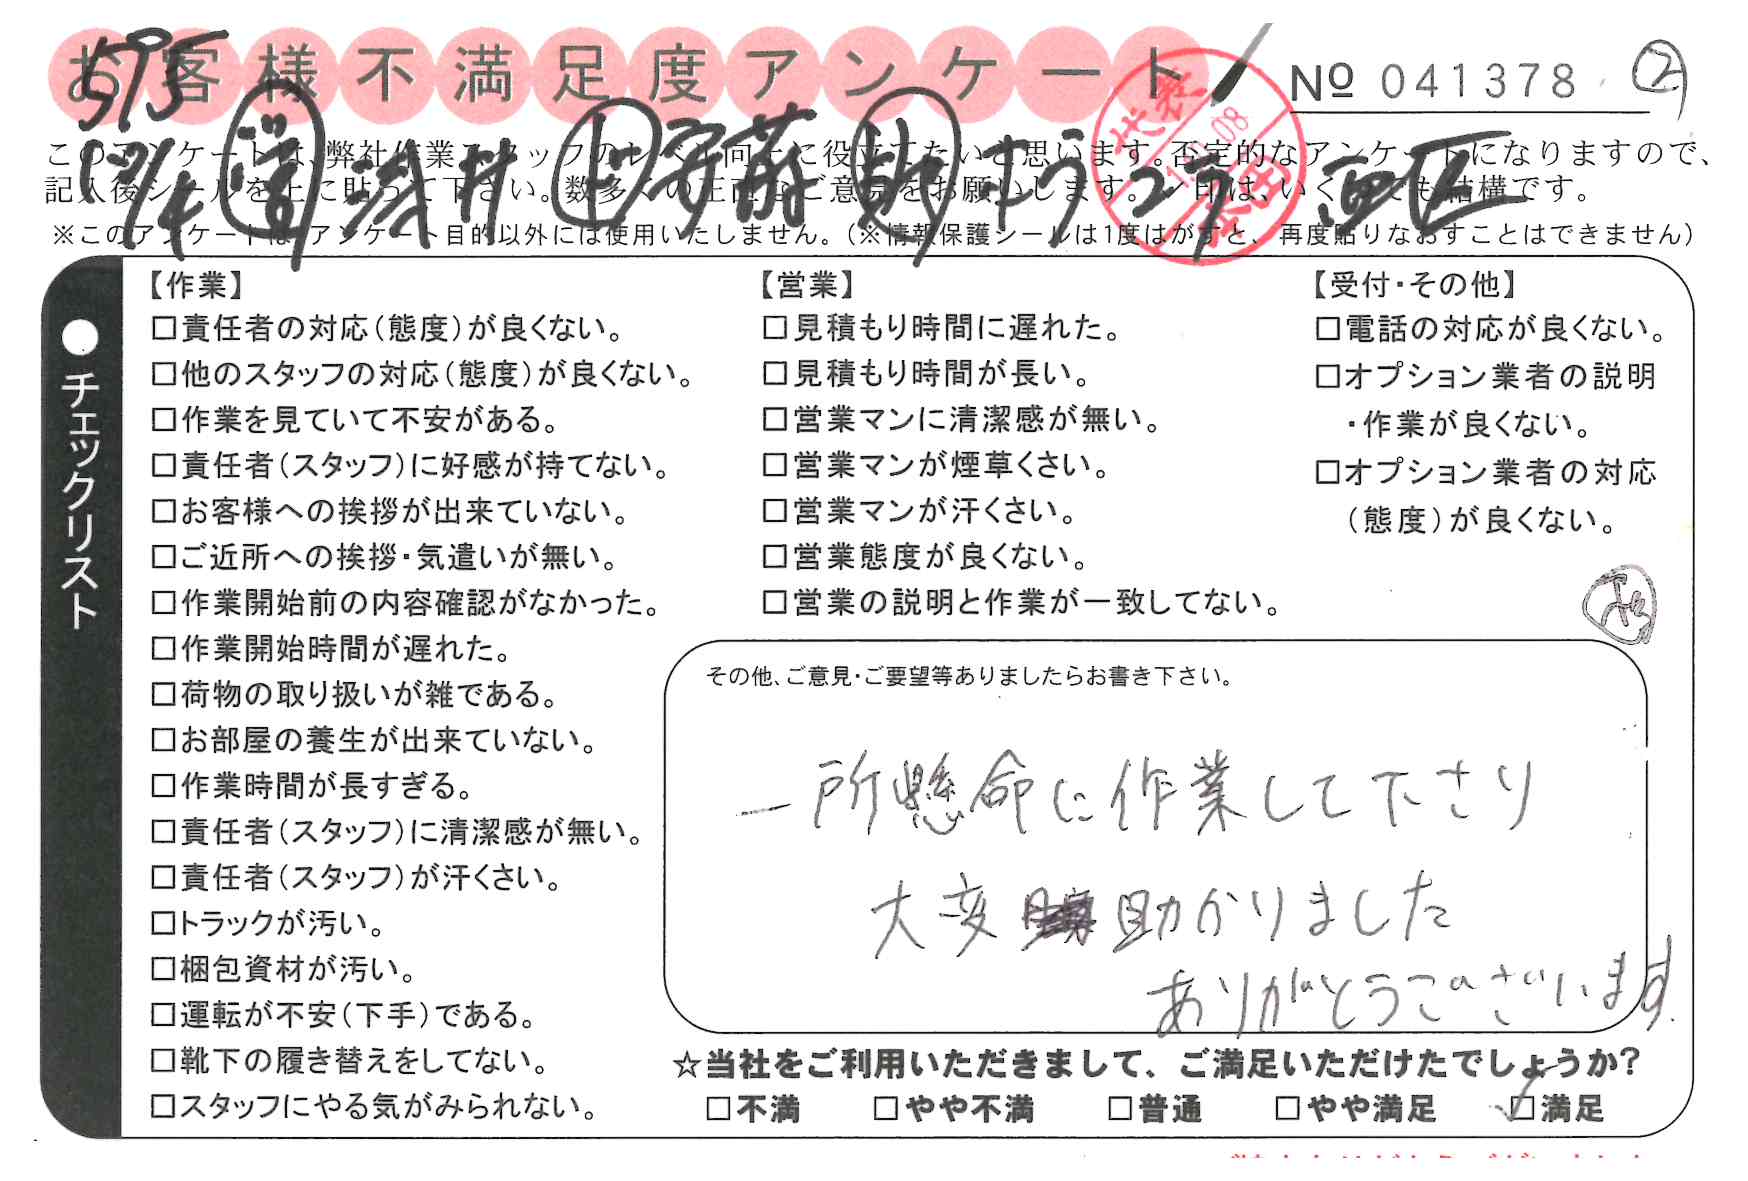 お客様不満足度アンケート
№ 041378 ②
このアンケートは、弊社作業スタッフのレベル向上に役立てたいと思います。否定的なアンケートになりますので、
記入後シールを上に貼って下さい。数多くの正直なご意見をお願いします。✓印は、いくつでも結構です。
※このアンケートは、アンケート目的以外には使用いたしません。（※情報保護シールは1度はがすと、再度貼りなおすことはできません）
●チェックリスト
【作業】
□責任者の対応（態度）が良くない。
□他のスタッフの対応（態度）が良くない。
□作業を見ていて不安がある。
□責任者（スタッフ）に好感が持てない。
□お客様への挨拶が出来ていない。
□ご近所への挨拶・気遣いが無い。
□作業開始前の内容確認がなかった。
□作業開始時間が遅れた。
□荷物の取り扱いが雑である。
□お部屋の養生が出来ていない。
□作業時間が長すぎる。
□責任者（スタッフ）に清潔感が無い。
□責任者（スタッフ）が汗くさい。
□トラックが汚い。
□梱包資材が汚い。
□運転が不安（下手）である。
□靴下の履き替えをしてない。
□スタッフにやる気がみられない。
【営業】
□見積もり時間に遅れた。
□見積もり時間が長い。
□営業マンに清潔感が無い。
□営業マンが煙草くさい。
□営業マンが汗くさい。
□営業態度が良くない。
□営業の説明と作業が一致してない。
【受付・その他】
□電話の対応が良くない。
□オプション業者の説明
・作業が良くない。
□オプション業者の対応
（態度）が良くない。
その他、ご意見・ご要望等ありましたらお書き下さい。
一所懸命に作業して下さり
大変助かりました
ありがとうございます
☆当社をご利用いただきまして、ご満足いただけたでしょうか？
□不満 □やや不満 □普通 □やや満足 ☑満足